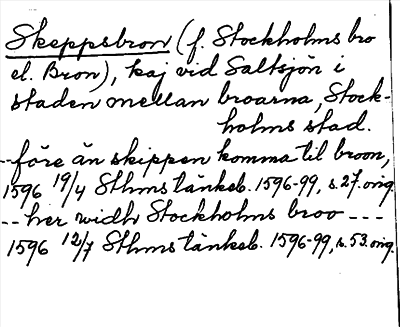 Skeppsbron (f. Stockholms bro
el. Bron), kaj vid Saltsjön i
staden mellan broarna, Stock-
holms stad.
--före än skippen komma til broon,
1596 19/4 Sthms tänkeb. 1596-99, s.27.orig.
-- her widh Stockholms broo ---
1596 12/7 Sthms tänkeb. 1596-99, s.53.orig.